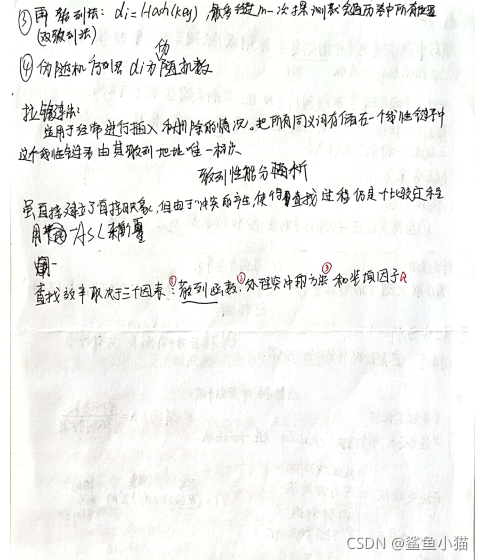 ③再散列法: di=Hash(key) 最多经过m-次探测就会遍历表中所有位置
(双散列法)
④伪随机序列法 di为伪随机数
拉链法:
适用于经常进行插入和删除的情况。把所有同义词存储在一个线性链表中
这个线性链表由其散列地址唯一标识
散列性能分析
虽直接建立了直接映象,但由于冲突的产生,使得查找过程仍是个比较过程
用 ASL来衡量
查找效率取决于三个因素:①散列函数,②处理突冲的方法③和装填因子
CSDN @鲨鱼小猫